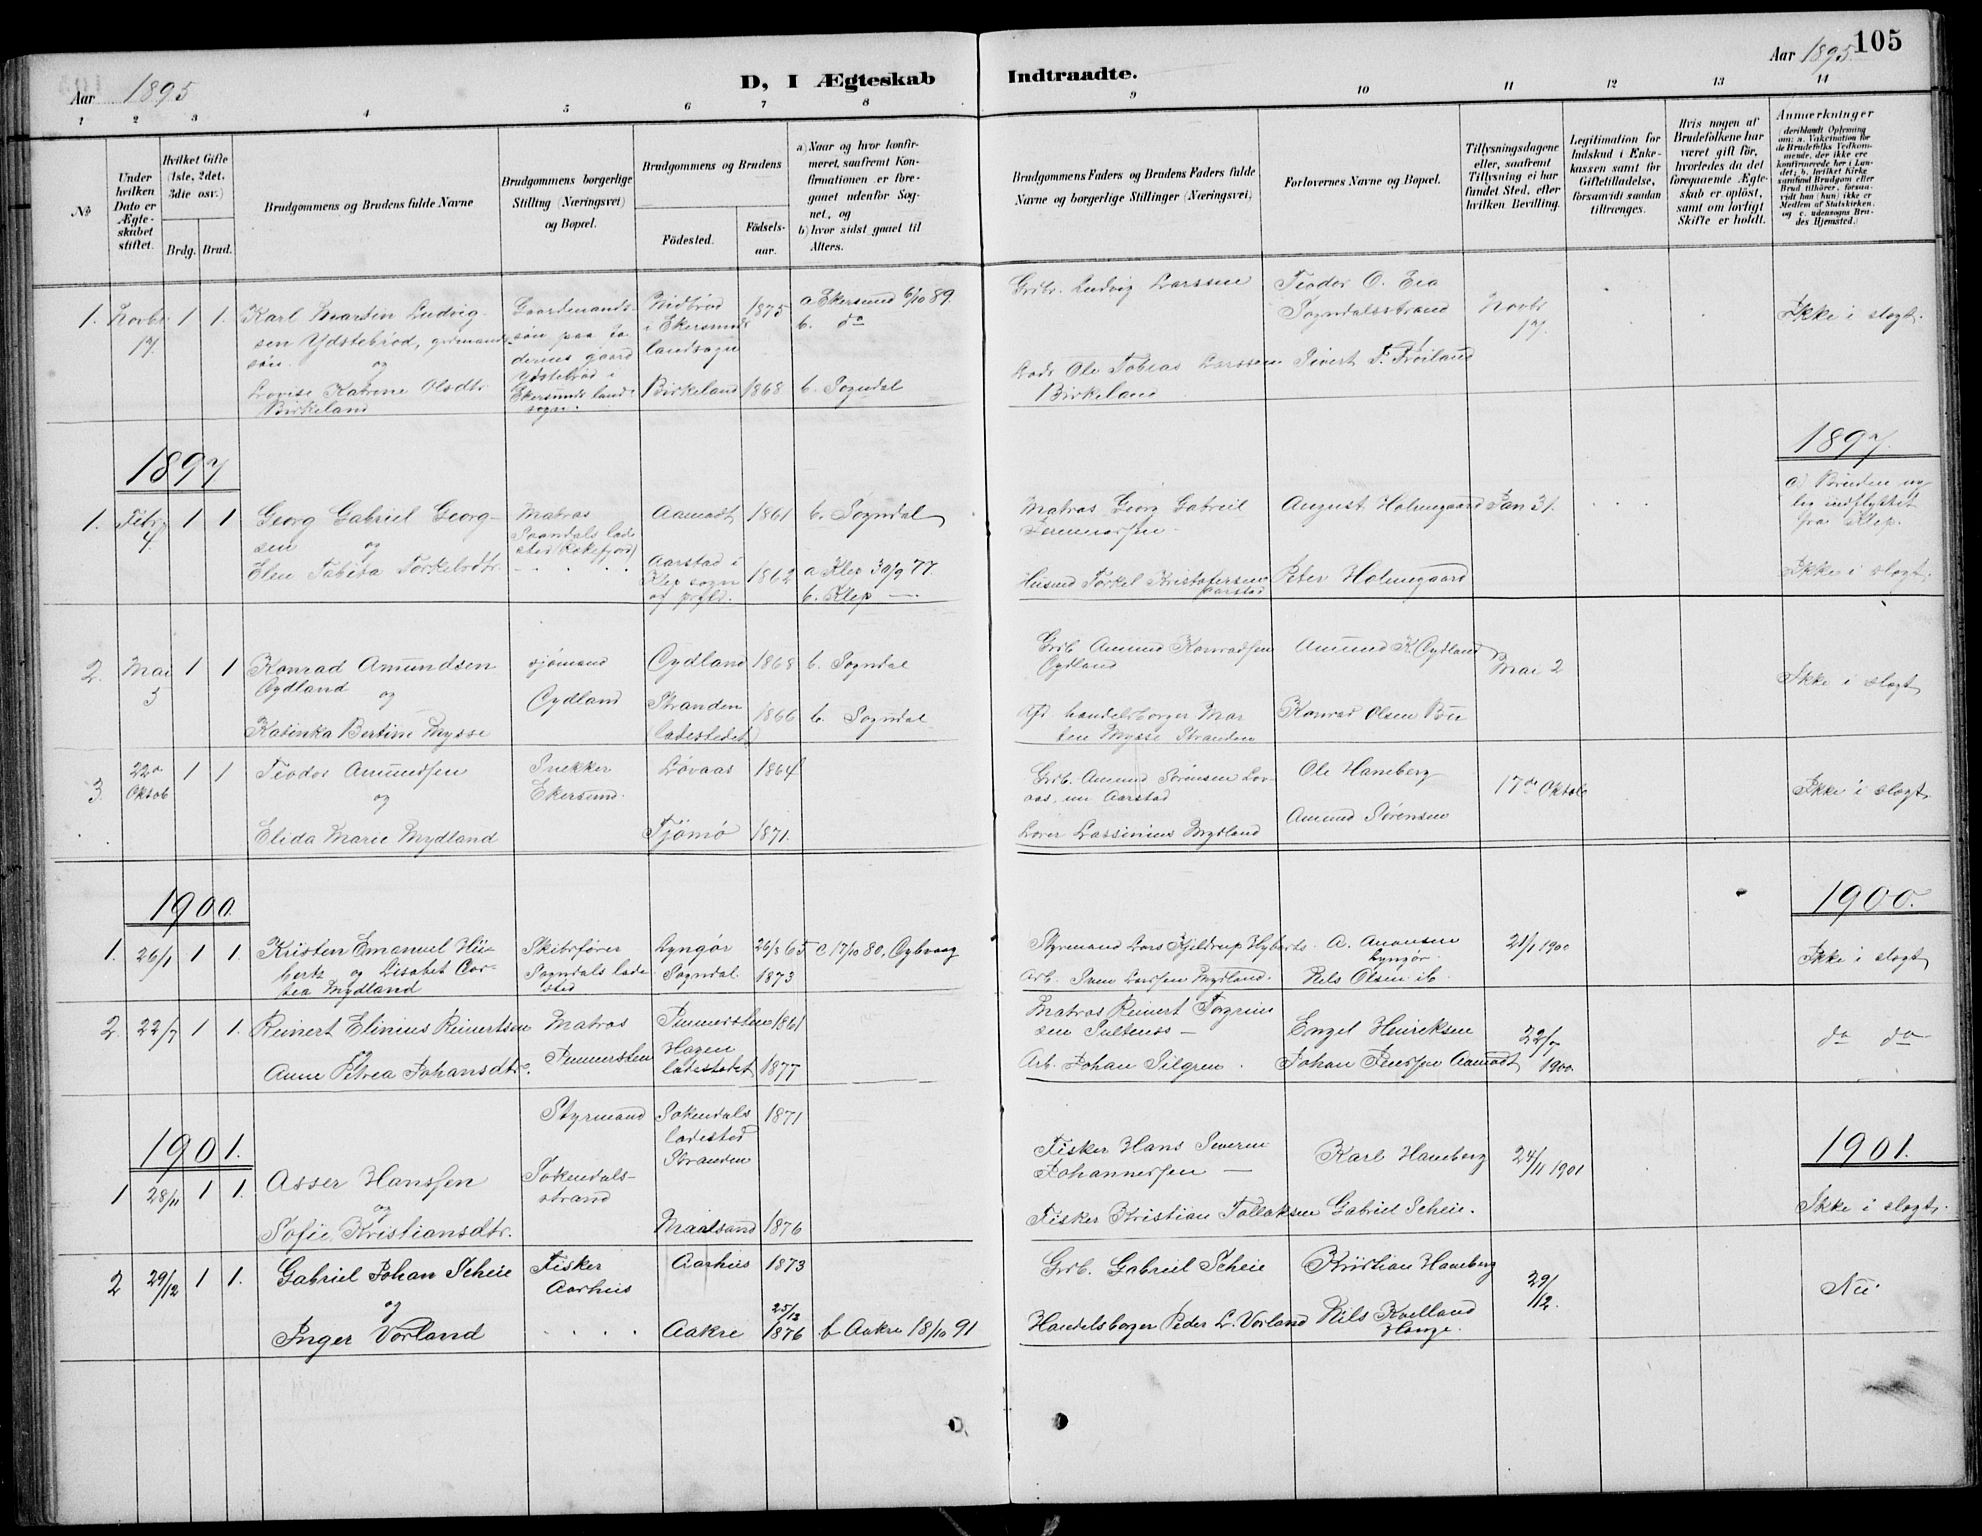 Aar 1895
D, I Ægteskab
Indtraadte.
Aar 1895
105
1 2 3 4 5 6 7 8
9 10 11 12 13 14
№
Under hvilken Dato er Ægteskabet stiftet.
Hvilket Gifte (1ste, 2det, 3die osv.)
Brdg. Brud.
Brudgommens og Brudens fulde Navne
Brudgommens borgerlige Stilling (Næringsvei) og Bopæl.
Brudgommens og Brudens
Fødested.
Fødselsaar.
a) Naar og hvor konfirmeret, saafremt Konfirmationen er foregaaet udenfor Sognet, og
b) hvor sidst gaaet til Alters.
Brudgommens Faders og Brudens Faders fulde Navne og borgerlige Stillinger (Næringsvei)
Forlovernes Navne og Bopæl.
Tillysningsdagene eller, saafremt Tillysning ei har fundet Sted, efter hvilken Bevilling.
Legitimation for Indskud i Enkekassen samt for Giftetilladelse, forsaavidt saadan tiltrænges.
Hvis nogen af Brudefolkene har været gift før, hvorledes da det foregaaende Ægteskab er opløst, samt om lovligt Skifte er holdt.
Anmærkninger
(deriblandt Oplysning om: a. Vakcination for de Brudefolks Vedkommende, der ikke ere konfirmerede her i Landet; b. hvilket Kirkesamfund Brudgom eller Brud tilhører, forsaavidt han (hun) ikke er Medlem af Statskirken, og c. udensogns Brudes Hjemsted.)
1. Novbr 17. 1 1.
Karl Martin Ludvig-
sen Ydstebrød, grdmands-
søn. og
Lovise Katrine Olsdtr
Birkeland
Gaardmands-
søn paa fa-
derens gaard
Ydstebrød i
Ekersunds land-
sogn.
i Ekersunds
landsogn 1875
Birkeland 1868
a Ekersund 6/10 89.
b. do
b. Sogndal
Grbr. Ludvig Larssen
Ole Tobias Larssen
Birkeland
Teodor O. Eia
Sogndalsstrand
Sivert T. Frøiland
Novbr 17.
Ikke i slegt.
1897
1897.
1. Febr 4. 1 1
Georg Gabriel Georg-
sen og
Elen Tabita Torkelsdtr.
Matros
Sogndals lade-
sted (Rekefjord)
Aamodt 1861
Aarstad i
Klep sogn
og prgld. 1862
b. Sogndal
a Klep 30/9 77.
b. Klep —
Matros Georg Gabriel
Husmd Torkel Kristofersen
Aarstad
August Holmgaard
Peter Holmgaard
Jan 31.
a) Bruden ny-
lig indflyttet
fra Klep.
Ikke i slegt.
2. Mai 5 1 1
Konrad Amundsen
Eydland og
Katinka Bertine Mysse
Sjømand
Eydland
Eydland 1868
Stranden
ladestedet 1866
b. Sogndal
b. Sogndal
Grb Amund Konradsen
Eydland
Afd. handelsborger Mar
ten Mysse Stranden
Amund K. Eydland
Konrad Olsen Bu
Mai 2
Ikke i slegt
3. 22de Oktob 1 1
Teodor Amundsen
og
Elida Marie Mydland
Snekker
Ekersund.
Løvaas 1864
Tjømø 1871.
Grb. Amund Sørensen Løv-
aas, nu Aarstad
Lassinius Mydland
Ole Haneberg
Amund Sørensen
17de Oktob
Ikke i slegt.
1900.
1900.
1. 26/1 1 1.
Kristen Emanuel Hü-
bertz og Lisabet Dor-
tea Mydland
Skibsfører
Sogndals lade-
sted
Lyngør 26/3 65
Sogndal. 1873
c 17/10 80. Dybvaag
Styrmand Lars Kjeldrup Hybertz.
Arb. Sven Larssen Mydland.
A. Amonsen
Lyngør
Nils Olsen ib.
21/1 1900
Ikke i slegt
2. 22/7 1 1.
Reinert Elinius Reinertsen
og
Anne Petrea Johansdtr.
Matros
Immersten
Immersten 1861
Havn
ladestedet 1877
Matros Reinert
sen
Arb. Johan Pilgren.
Engel Henriksen
Johan Jensen Aamodt
22/7
1900.
do do
1901.
1901.
1 28/11 1 1.
Asser Hanssen
og
Sofie Kristiansdtr.
Styrmand
Sokendals-
strand
Sokendals
ladested
Stranden 1871
Maalsund 1876
Fisker Hans Severin
Johannessen —
Fisker Kristian Tollaksen
Karl Haneberg
Gabriel Scheie.
24/11 1901
Ikke i slegt.
2 29/12 1 1.
Gabriel Johan Scheie
og
Inger Vorland
Fisker
Aarhus
Aarhus 1873
Aakre 25/12 1876
b Aakre 18/10 91
Grb. Gabriel Scheie
Handelsborger Peder L. Vorland
Kristian Haneberg
Nils Kvelland
Hauge.
29/12.
Nei.